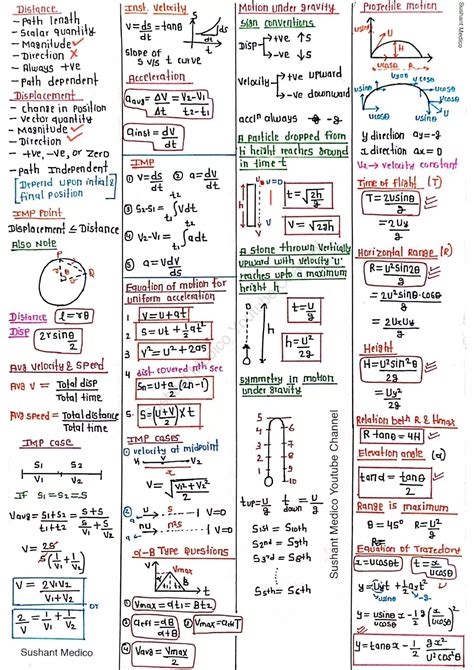 Distance
- Path length
- Scalar quantity
- Magnitude ✓
- Direction ✗
- Always +ve
- Path dependent
Displacement
- Change in Position
- Vector quantity
- Magnitude ✓
- Direction ✓
- +ve, -ve, or Zero
- path Independent
[Depend upon initial &
final position]
IMP Point
Displacement ≤ Distance
Also Note
P
Q
Distance l = rθ
Disp 2rsin θ/2
Avg Velocity & Speed
Avg V = Total disp / Total Time
Avg speed = Total distance / Total time
IMP case
S1 S2
V1 V2
If S1 = S2 = S
V = 2V1V2 / V1+V2
or
2/V = 1/V1 + 1/V2
Sushant Medico
Inst. Velocity
V = ds/dt = tanθ
slope of
S v/s t curve
Acceleration
a avg = ΔV/Δt = V2-V1 / t2-t1
a inst = dV/dt
IMP
① V = ds/dt ② a = dV/dt
③ S2-S1 = ∫Vdt
④ V2-V1 = ∫adt
⑤ a = VdV/ds
Equation of motion for
uniform acceleration
1. V = u+at
2. S = ut + 1/2 at²
3. V² = u² + 2as
4. dist. covered nth sec
Sn = u + a/2 (2n-1)
5. S = (u+V / 2) x t
IMP cases
① velocity at midpoint
V1 V V2
V = √(V1²+V2² / 2)
V=0
α-β Type Questions
① Vmax = αt1 = βt2
④ Vavg = Vmax / 2
Motion under gravity
sign conventions
Disp → +ve ↑S
→ -ve ↓S
Velocity → +ve upward
→ -ve downward
accⁿ always -g
A particle dropped from
H height reaches ground
in time t
u=0
t = √(2h/g)
V = √2gh
A stone thrown vertically
upward with velocity 'u'
reaches upto a maximum
height h
t = u/g
h = u²/2g
symmetry in motion
under gravity
5 6
4 7
3 8
2 9
1 10
tup = u/g t down = u/g
S1st = S10th
S2nd = S9th
S3rd = S8th
S5th = S6th
Sushant Medico Youtube Channel
Projectile motion
Sushant Medico
y direction ay = -g
x direction ax = 0
Vx → velocity constant
Time of flight (T)
T = 2usinθ / g
= 2Uy / g
Horizontal Range (R)
R = U²sin2θ / g
= 2U²sinθ·cosθ / g
= 2UxUy / g
Height
H = U²sin²θ / 2g
= Uy² / 2g
Relation betn R & Hmax
R tanθ = 4H
Elevation angle (α)
tanα = tanθ / 2
Range is maximum
θ = 45° R = U²/g
x = ucosθt
t = x / ucosθ
y = Uyt + 1/2 ayt²
y = xtanθ - 1/2 gx² / u²cos²θ